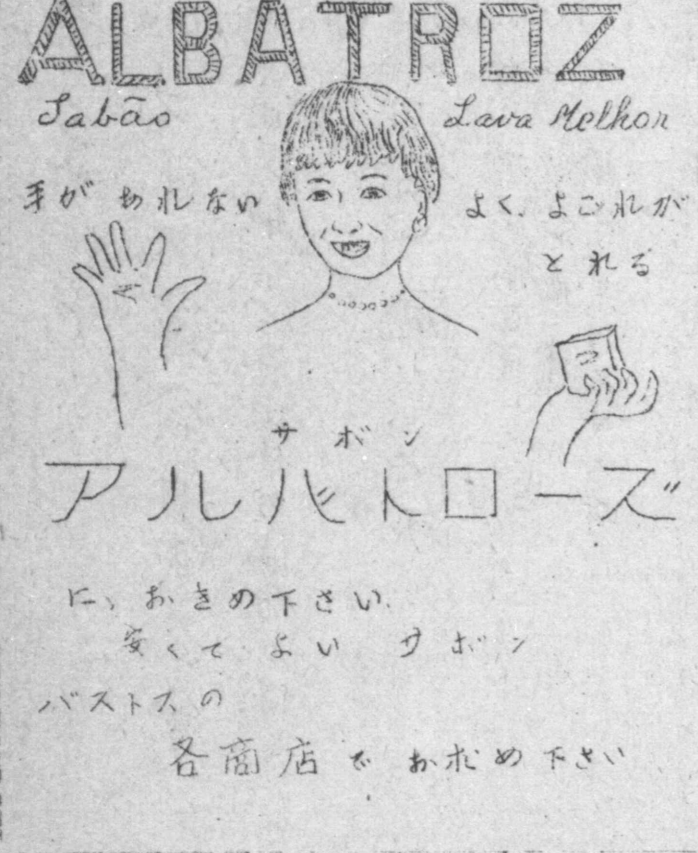 ALBATROZ
Sabão
Lava Melhor
手が あれない
よく、よごれが
とれる
サボン
アルバトローズ
に、おきめ下さい
安くて よい サボン
バストスの
各商店で お求め下さい